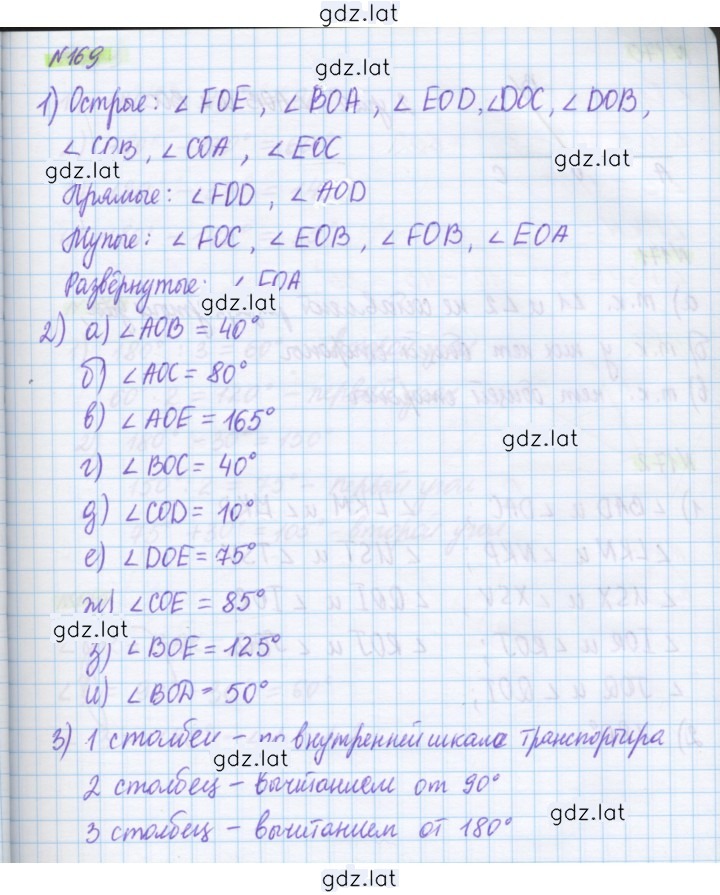 gdz.lat
N169
gdz.lat
1) Острые: ∠FOE, ∠BOA, ∠EOD, ∠DOC, ∠DOB,
∠COB, ∠COA, ∠EOC
gdz.lat
gdz.lat
Прямые: ∠FOD, ∠AOD
Тупые: ∠FOC, ∠EOB, ∠FOB, ∠EOA
Развёрнутые: ∠FOA
gdz.lat
2) а) ∠AOB = 40°
б) ∠AOC = 80°
в) ∠AOE = 165°
gdz.lat
г) ∠BOC = 40°
д) ∠COD = 10°
е) ∠DOE = 75°
ж) ∠COE = 85°
gdz.lat
з) ∠BOE = 125°
и) ∠BOD = 50°
3) 1 столбец - по внутренней шкале транспортира
gdz.lat
2 столбец - вычитанием от 90°
gdz.lat
3 столбец - вычитанием от 180°
gdz.lat